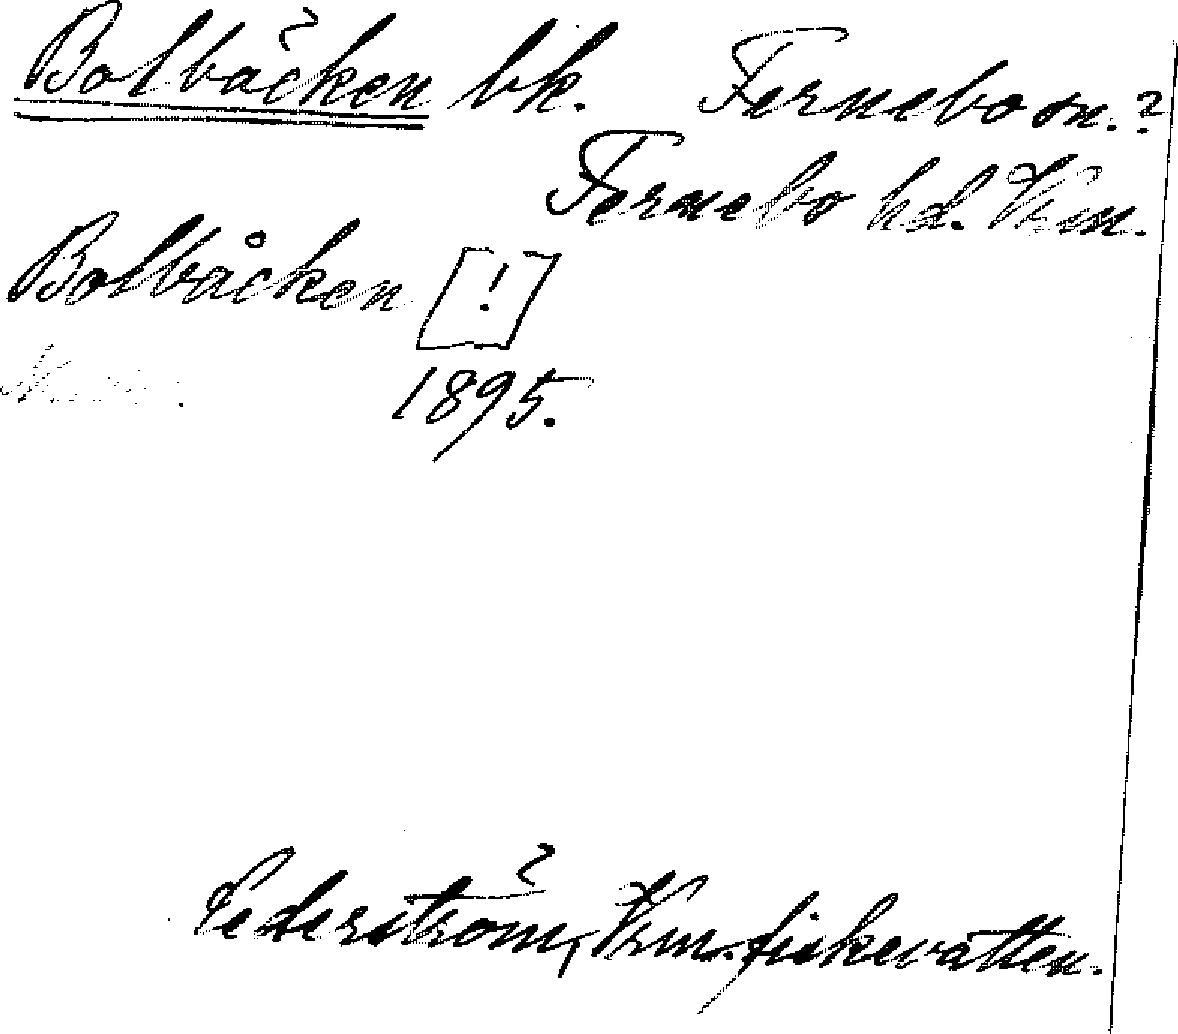 Bolbäcken bk. Fernebo sn.?
Fernebo hd. Vrm.
Bolbåcken [!]
1895.
Cederström, Vrm. fiskevatten.